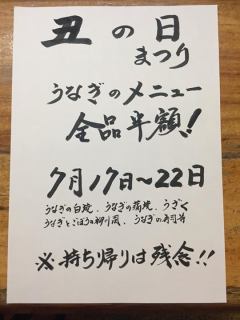 丑の日
まつり
うなぎのメニュー
全品半額!
7月17日~22日
うなぎの白焼、うなぎの蒲焼、うざく
うなぎとごぼうの柳川風、うなぎの寿司等
※持ち帰りは残念!!